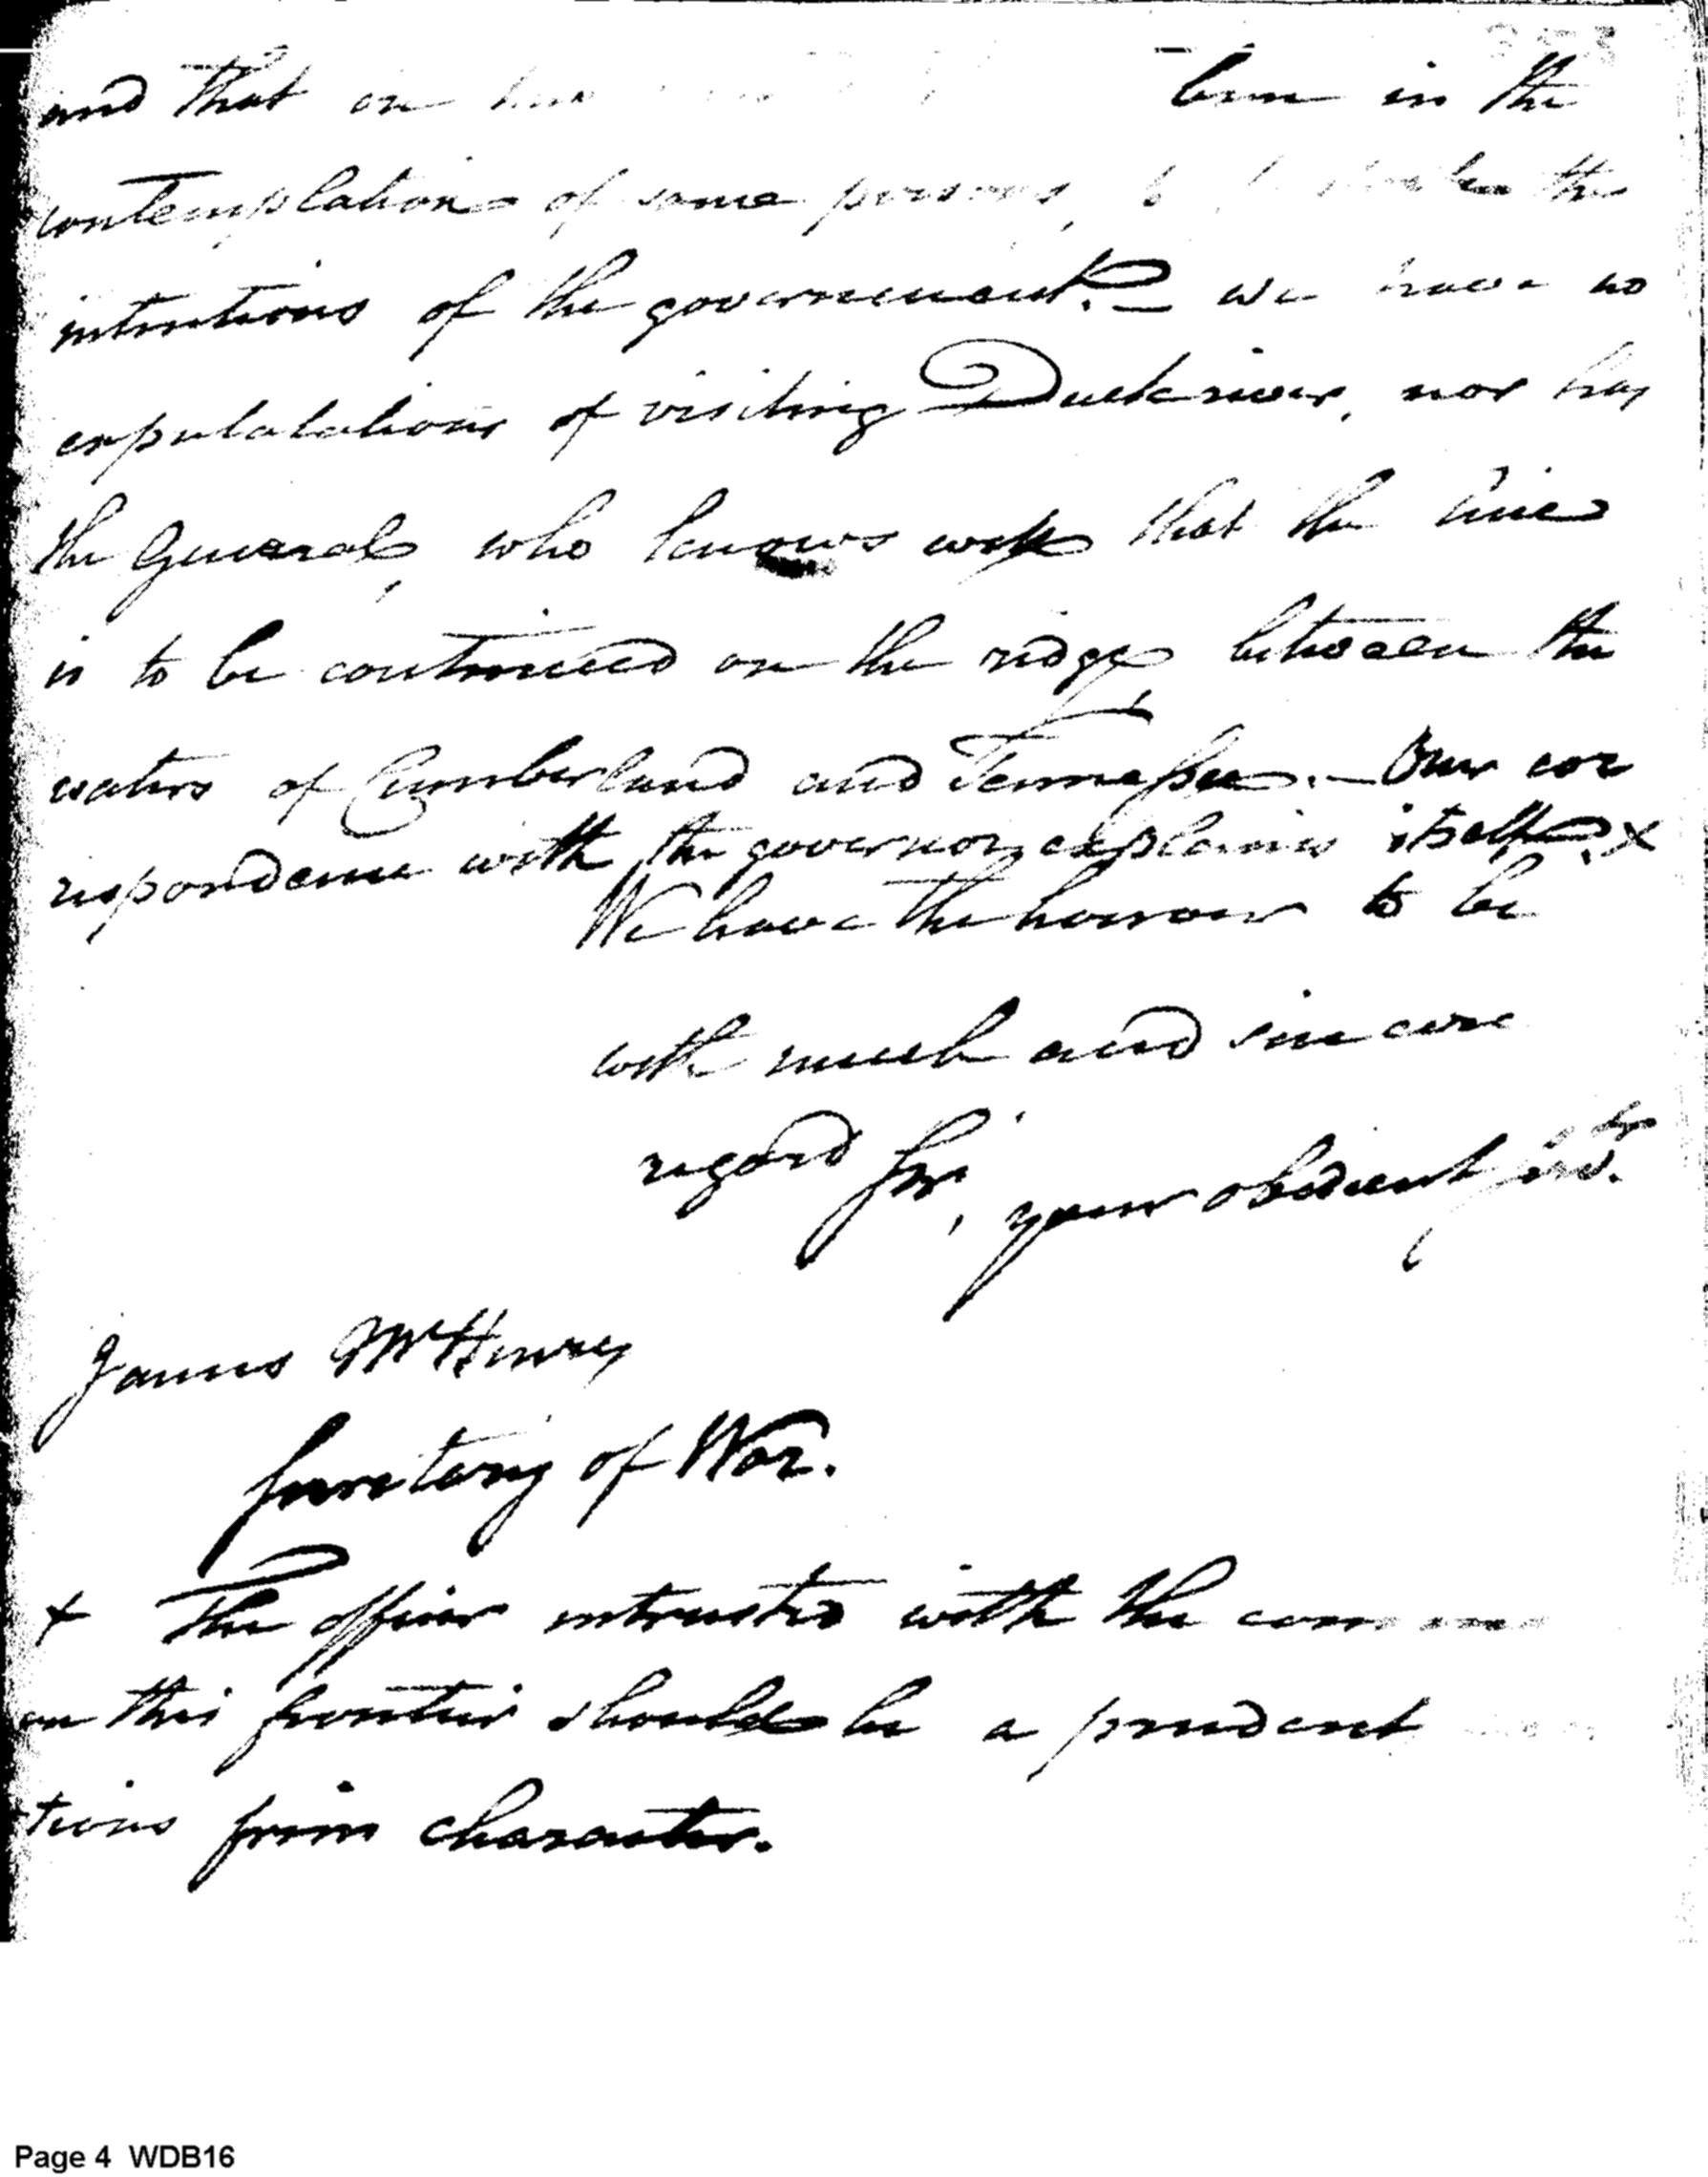 and that on been in the
contemplation of some persons, the
intentions of the government. — we have no
expectatations of visiting Duck river, nor has
the General, who knows well that the line
is to be continued on the ridge between the
waters of Cumberland and Tennessee. — Our cor
respondence with the governor explains itself. x
We have the honour to be
with much and sincere
regard Sir, your obedient servts.
James McHenry
Secretary of War.
x The officer intrusted with the
on this frontier should be a prudent
firm character.
Page 4 WDB16